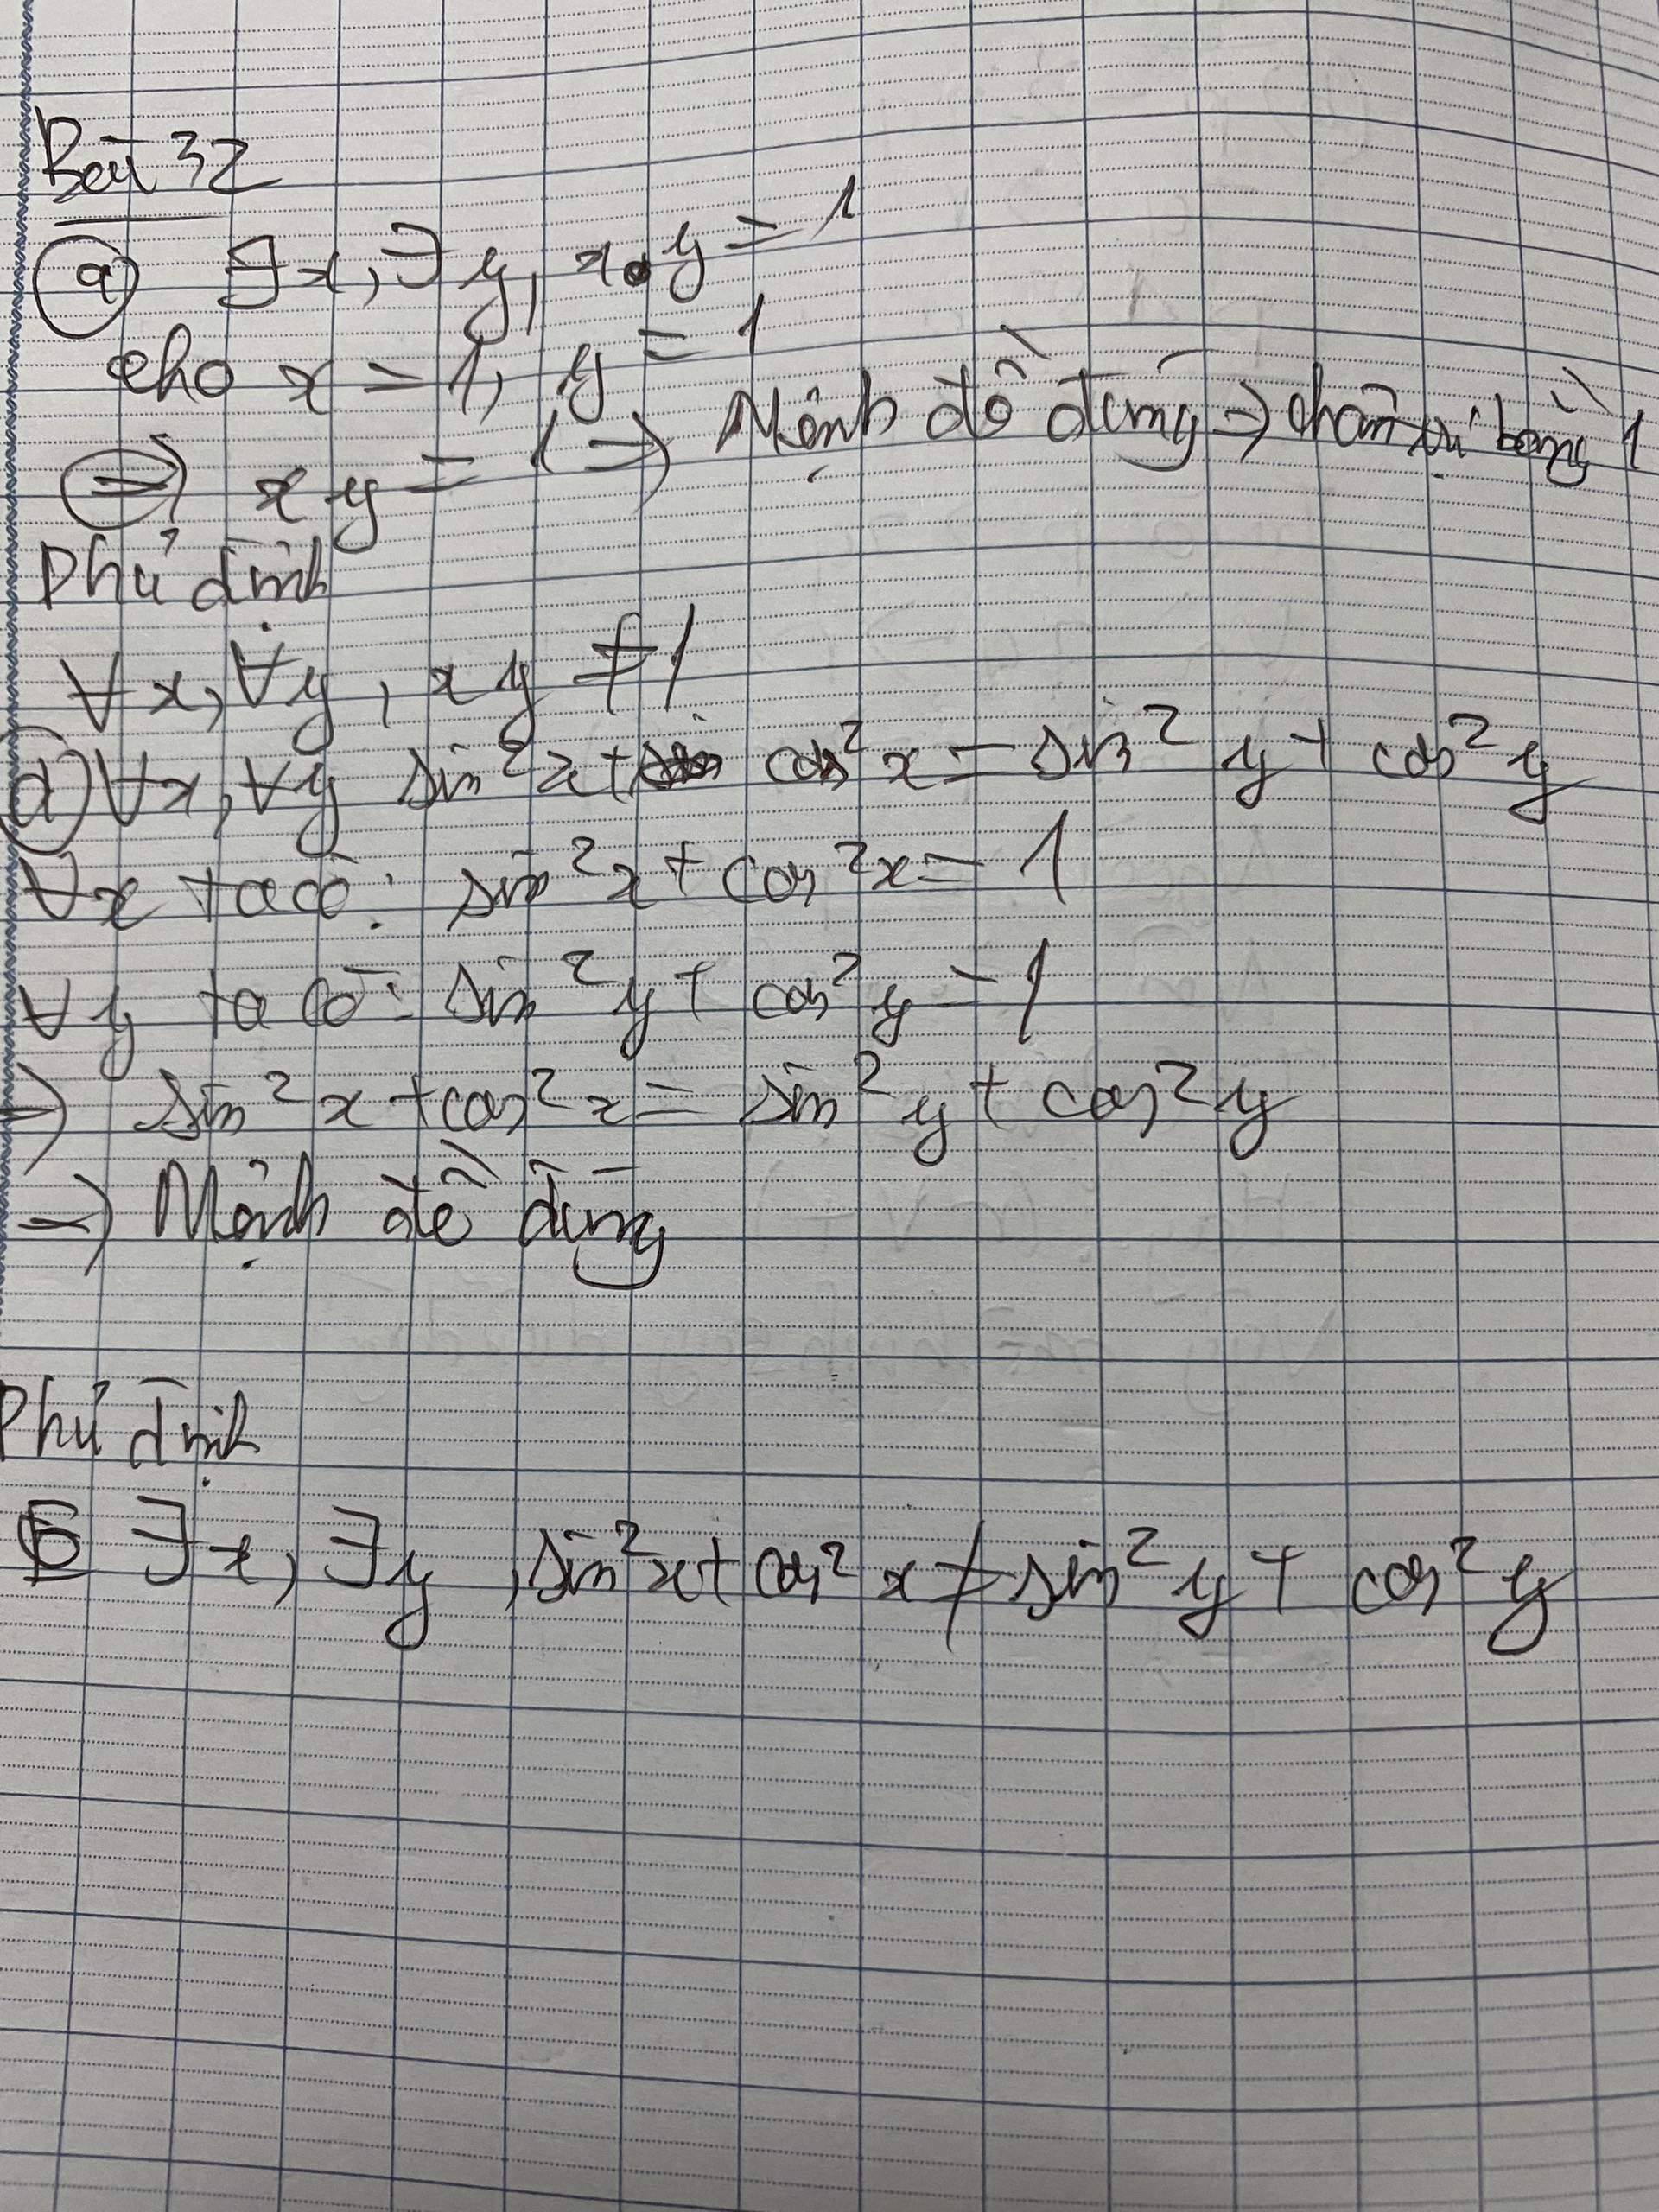 Bài 32
a) ∃x, ∃y, x.y = 1
cho x = 1, y = 1
⇒ xy = 1 ⇒ Mệnh đề đúng ⇒ chân trị bằng 1
Phủ định
∀x, ∀y, xy ≠ 1
d) ∀x, ∀y sin²x + cos²x = sin²y + cos²y
∀x ta có: sin²x + cos²x = 1
∀y ta có: sin²y + cos²y = 1
⇒ sin²x + cos²x = sin²y + cos²y
⇒ Mệnh đề đúng
Phủ định
∃x, ∃y, sin²x + cos²x ≠ sin²y + cos²y